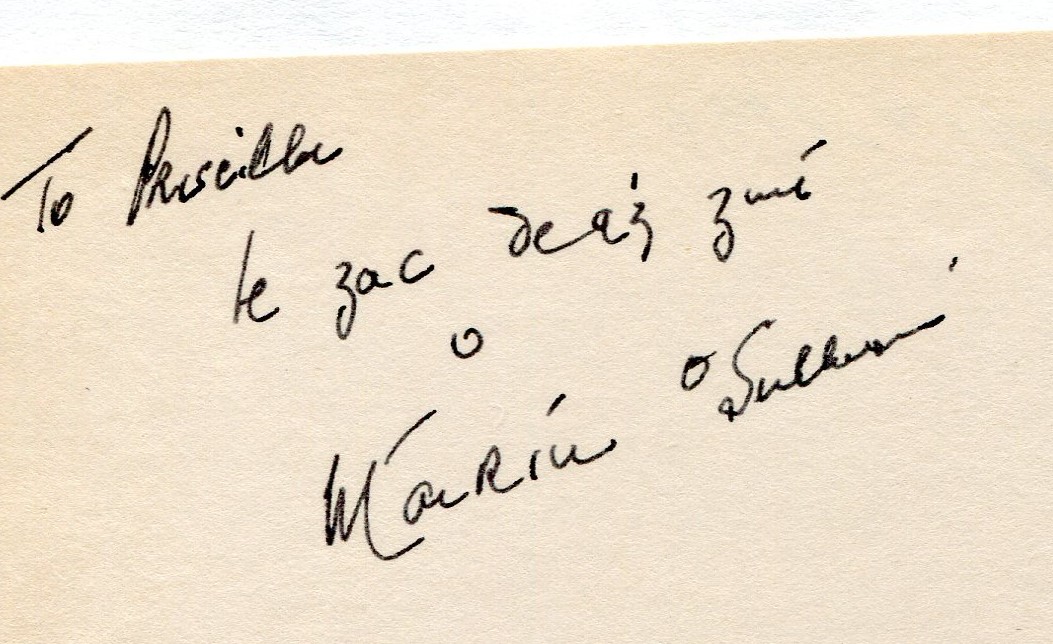 To Priscilla
le gac deaġ guí
o
Mairín O Sullivan